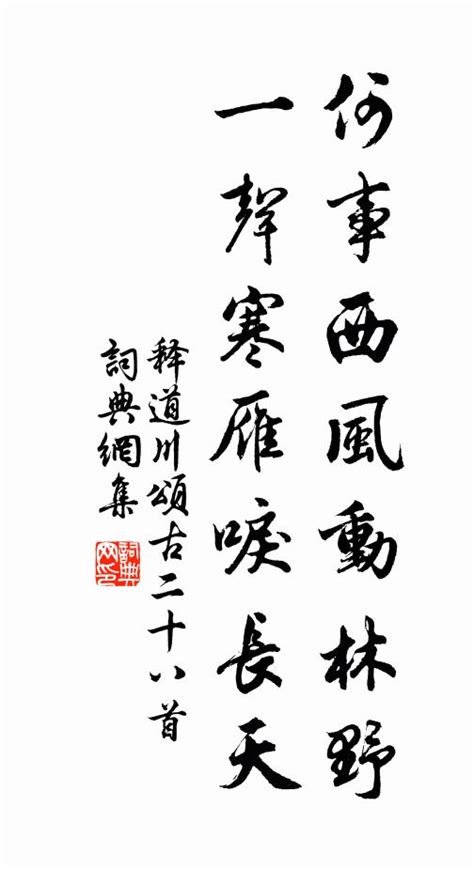 何事西風動林野
一聲寒雁唳長天
释道川頌古二十八首
詞典網集
詞典
网印